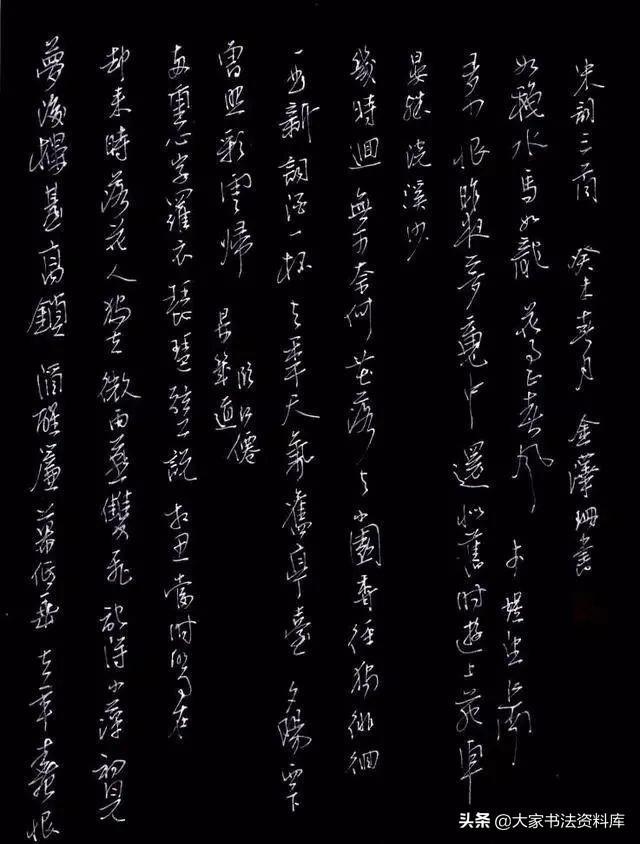 夢後樓臺高鎖 酒醒簾幕低垂 去年春恨
却來時 落花人獨立 微雨燕雙飛 記得小蘋初見
兩重心字羅衣 琵琶弦上説相思 當時明月在
曾照彩雲歸 晏幾道 臨江僊
一曲新詞酒一杯 去年天氣舊亭臺 夕陽西下
幾時迴 無可奈何花落去 小園香徑獨徘徊
晏殊 浣溪沙
多少恨 昨夜夢魂中 還似舊時遊上苑 車
如流水馬如龍 花月正春風 李煜 望江南
宋詞三首 癸巳春月 金澤珊書
头条 @大家书法资料库